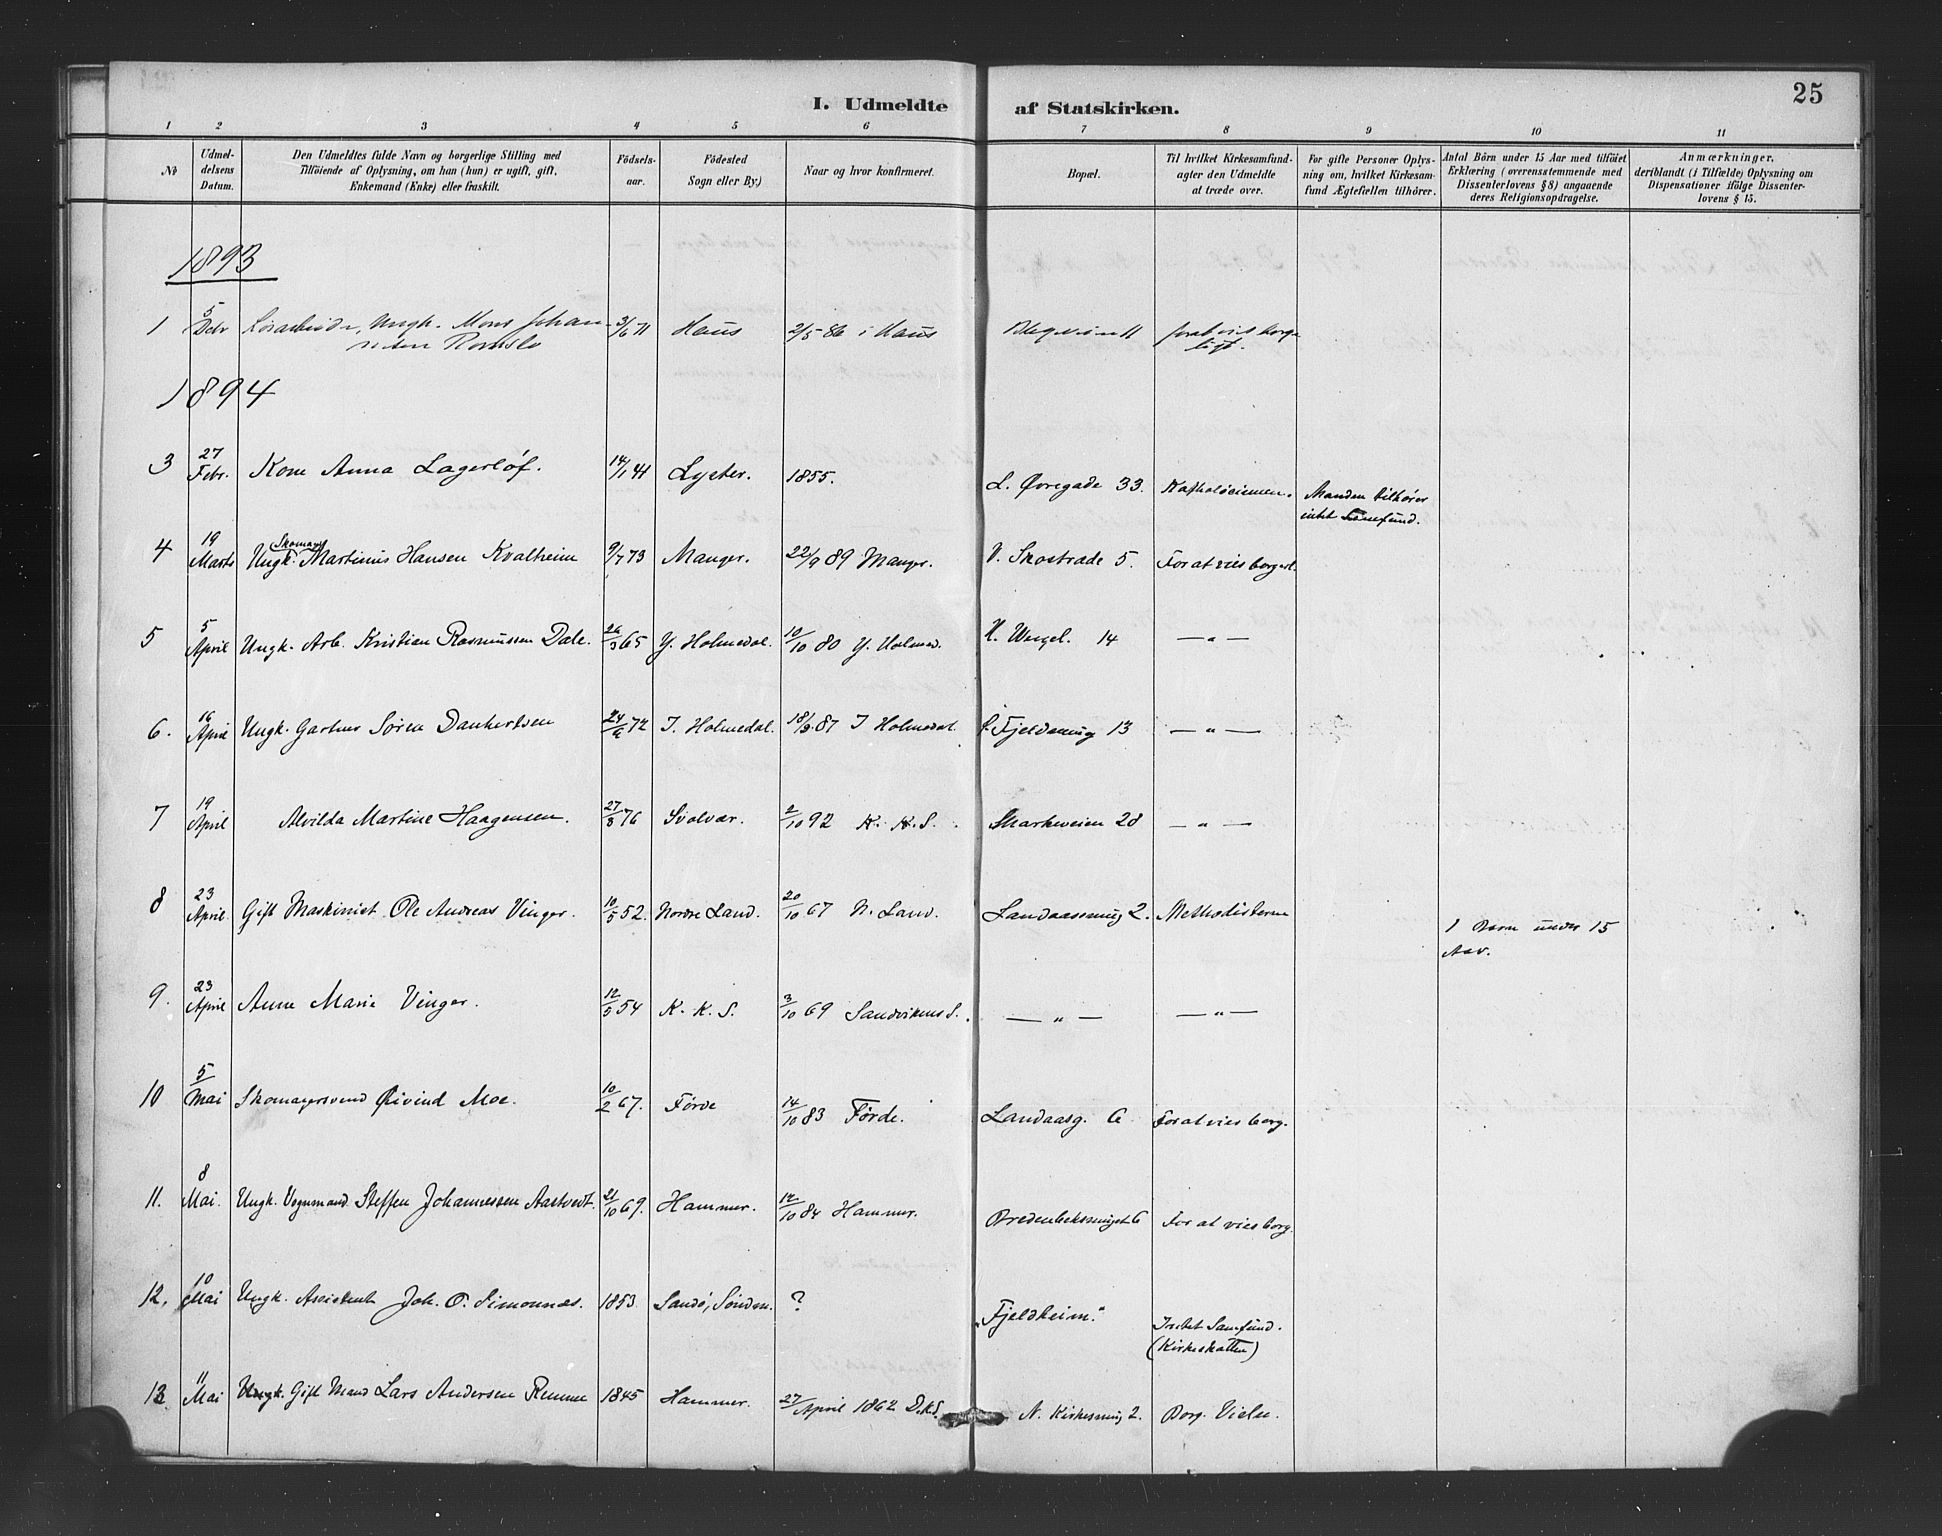 25
I. Udmeldte af Statskirken.
1 2 3 4 5 6 7 8 9 10 11
No
Udmel-
delsens
Datum.
Den Udmeldtes fulde Navn og borgerlige Stilling med
Tilföiende af Oplysning, om han (hun) er ugift, gift,
Enkemand (Enke) eller fraskilt.
Födsels-
aar.
Födested
Sogn eller By.)
Naar og hvor konfirmeret.
Bopæl.
Til hvilket Kirkesamfund-
agter den Udmeldte
at træde over.
For gifte Personer Oplys-
ning om, hvilket Kirkesam-
fund Ægtefællen tilhörer.
Antal Börn under 15 Aar med tilföiet
Erklæring (overensstemmende med
Dissenterlovens §8) angaaende
deres Religionsopdragelse.
Anmærkninger,
deriblandt (i Tilfælde) Oplysning om
Dispensationer ifölge Dissenter-
lovens § 15.
1893
1 5 Debr Løsarbeider, Ungk. Mons Johan- 3/6 71 Haus 2/5 86 i Haus 11 for at vies borger-
nesen Romslo ligt.
1894
3 27 Febr. Kone Anna Lagerlöf. 14/1 41 Lyster. 1855. L. Øvregade 33. Katholicismen. Manden tilhører
intet Samfund.
4 19 Marts Ungk. Skomager Martinus Hansen Kvalheim 9/7 73 Manger. 22/9 89 Manger. V. Skostrade 5. For at vies borgerl.
5 5 April Ungk. Arb. Kristian Rasmussen Dale. 26/3 65 Y. Holmedal. 10/10 80 Y. Holmed. 14 — " —
6. 16 April Ungk. Gartner Søren Dankertsen 24/6 72 I. Holmedal. 18/9 87 I Holmedal. Fjeldsmug 13 — " —
7 19 April Alvilda Martine Haagensen. 27/8 76 Svolvær. 2/10 92 K. K. S. Markeveien 28 — " —
8 23 April. Gift Maskinist Ole Andreas Vinger. 10/5 52. Nordre Land. 20/10 67 N. Land. Landaassmug 2. Methodisterne 1 Barn under 15
Aar.
9. 23 April Anne Marie Vinger. 12/5 54 K. K. S. 3/10 69 Sandvikens S. — " — — " —
10 5 Mai Skomagersvend Øivind Moe. 10/2 67. Förde 14/10 83 Førde. Landaasg. 6 For at vies borg.
11. 8 Mai. Ungk. Vognmand Steffen Johannessen Aastvedt. 21/10 69. Hammer. 12/10 84 Hammer. Bredenbeksmuget 6 For at vies borg.
12. 10 Mai Ungk. Assistent Joh. O. Simonnæs. 1853 Sandö, Söndm. ? "Fjeldheim." Intet Samfund.
(Kirkeskatten)
13 11 Mai Ungk. Gift Mand Lars Andersen Remme 1845 Hammer. 27/April 1862 D.K.S. N. Kirkesmug 2. Borg. Vielse.